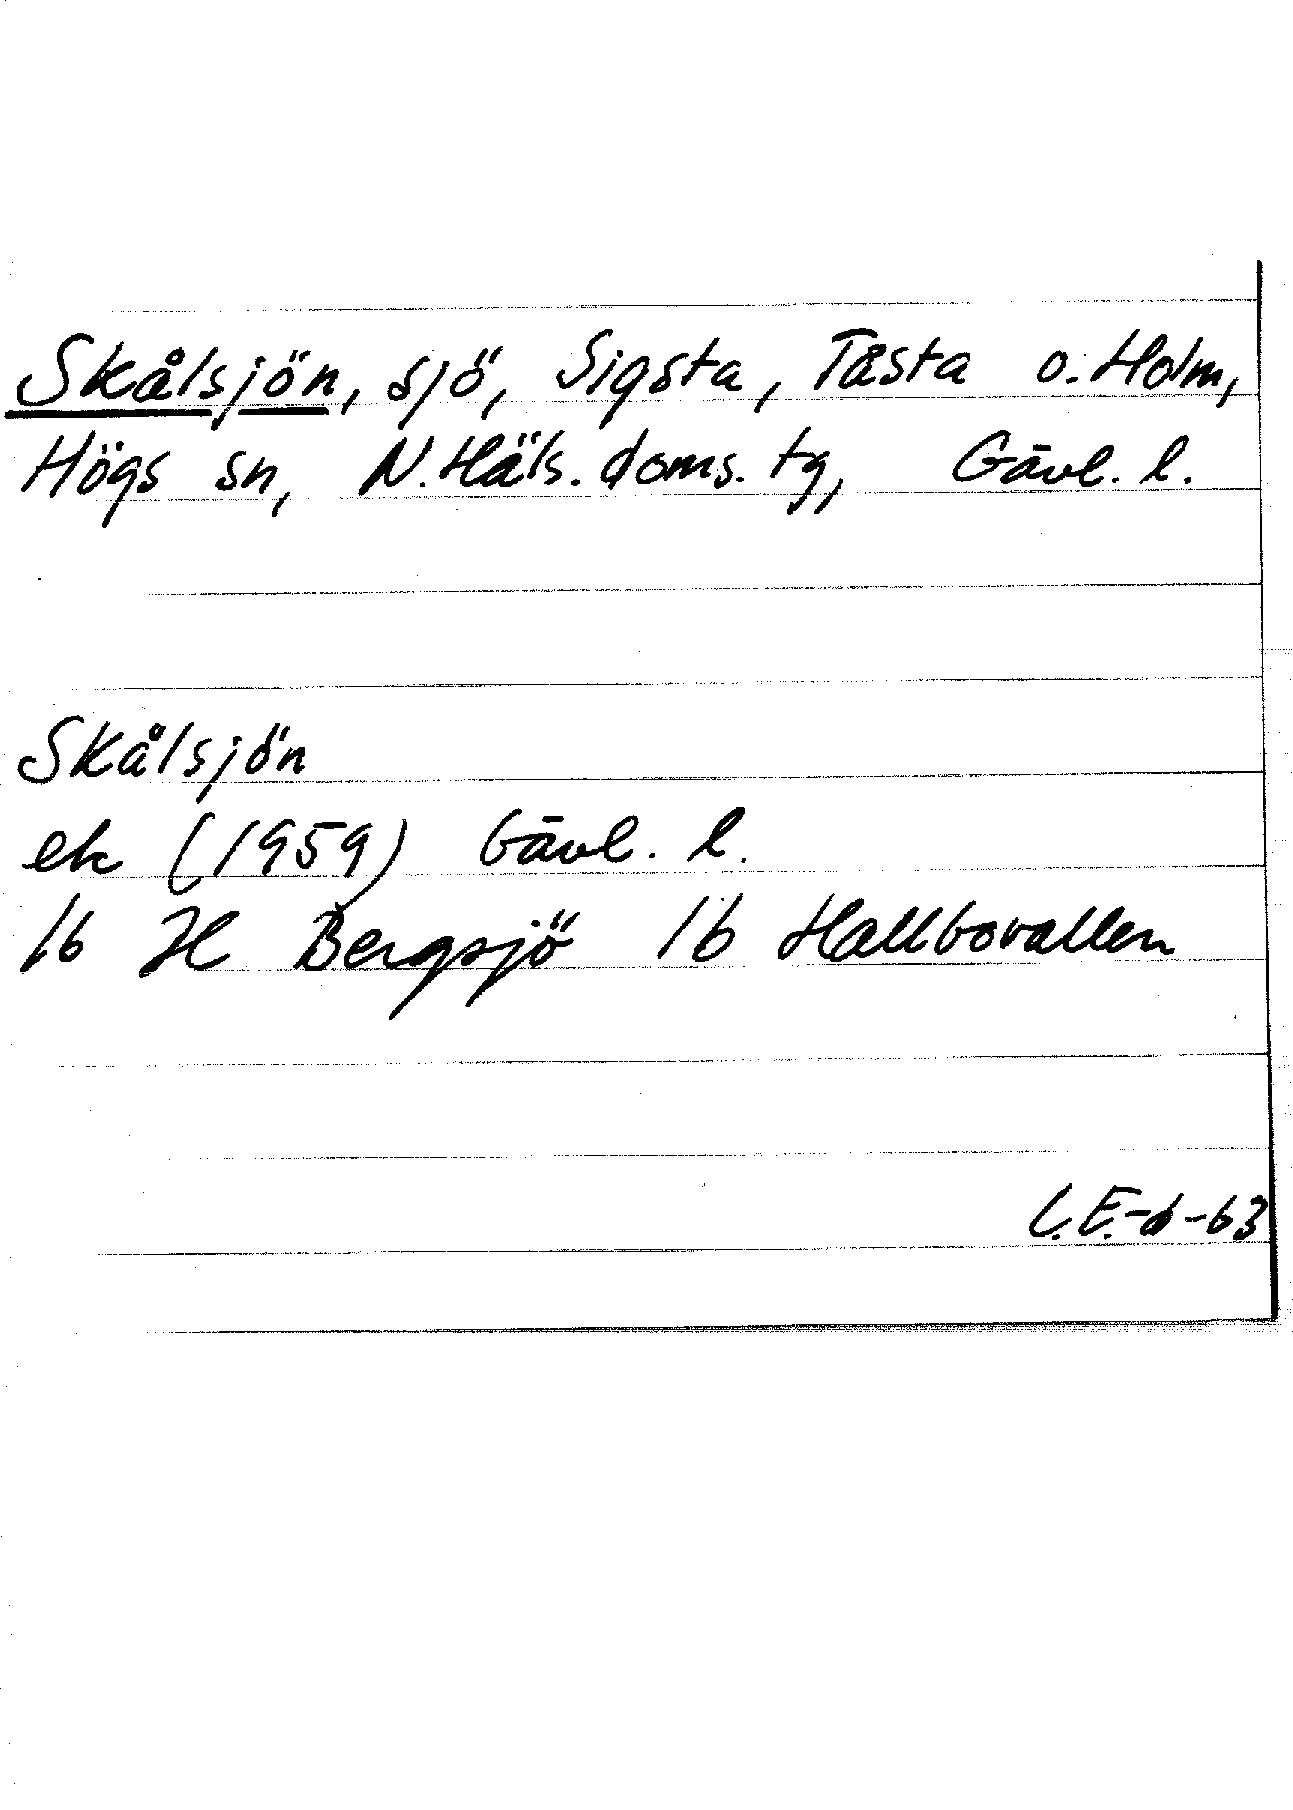 Skålsjön, sjö, Sigsta, Tåsta o. Holm,
Högs sn, N. Häls. doms. tg, Gävl. l.
Skålsjön
ek (1959) Gävl. l.
16 H Bergsjö 1b Hallbovallen
C.E.-d-63